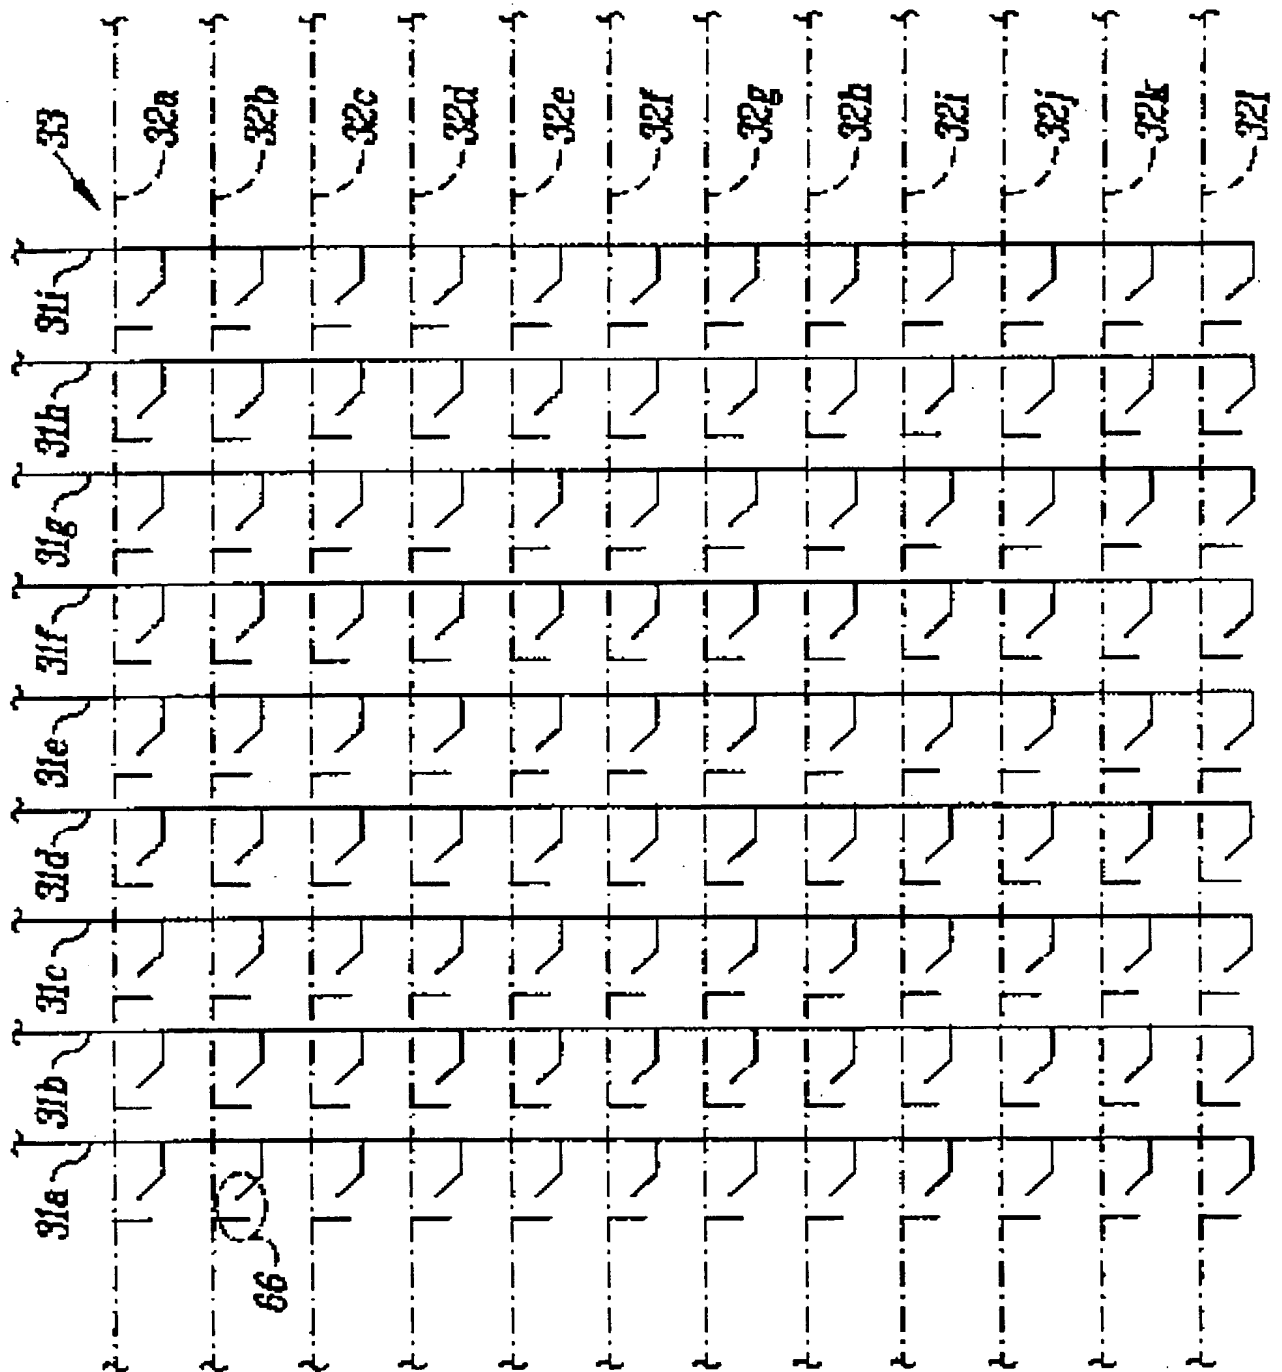 33
32a
32b
32c
32d
32e
32f
32g
32h
32i
32j
32k
32l
31i
31h
31g
31f
31e
31d
31c
31b
31a
66